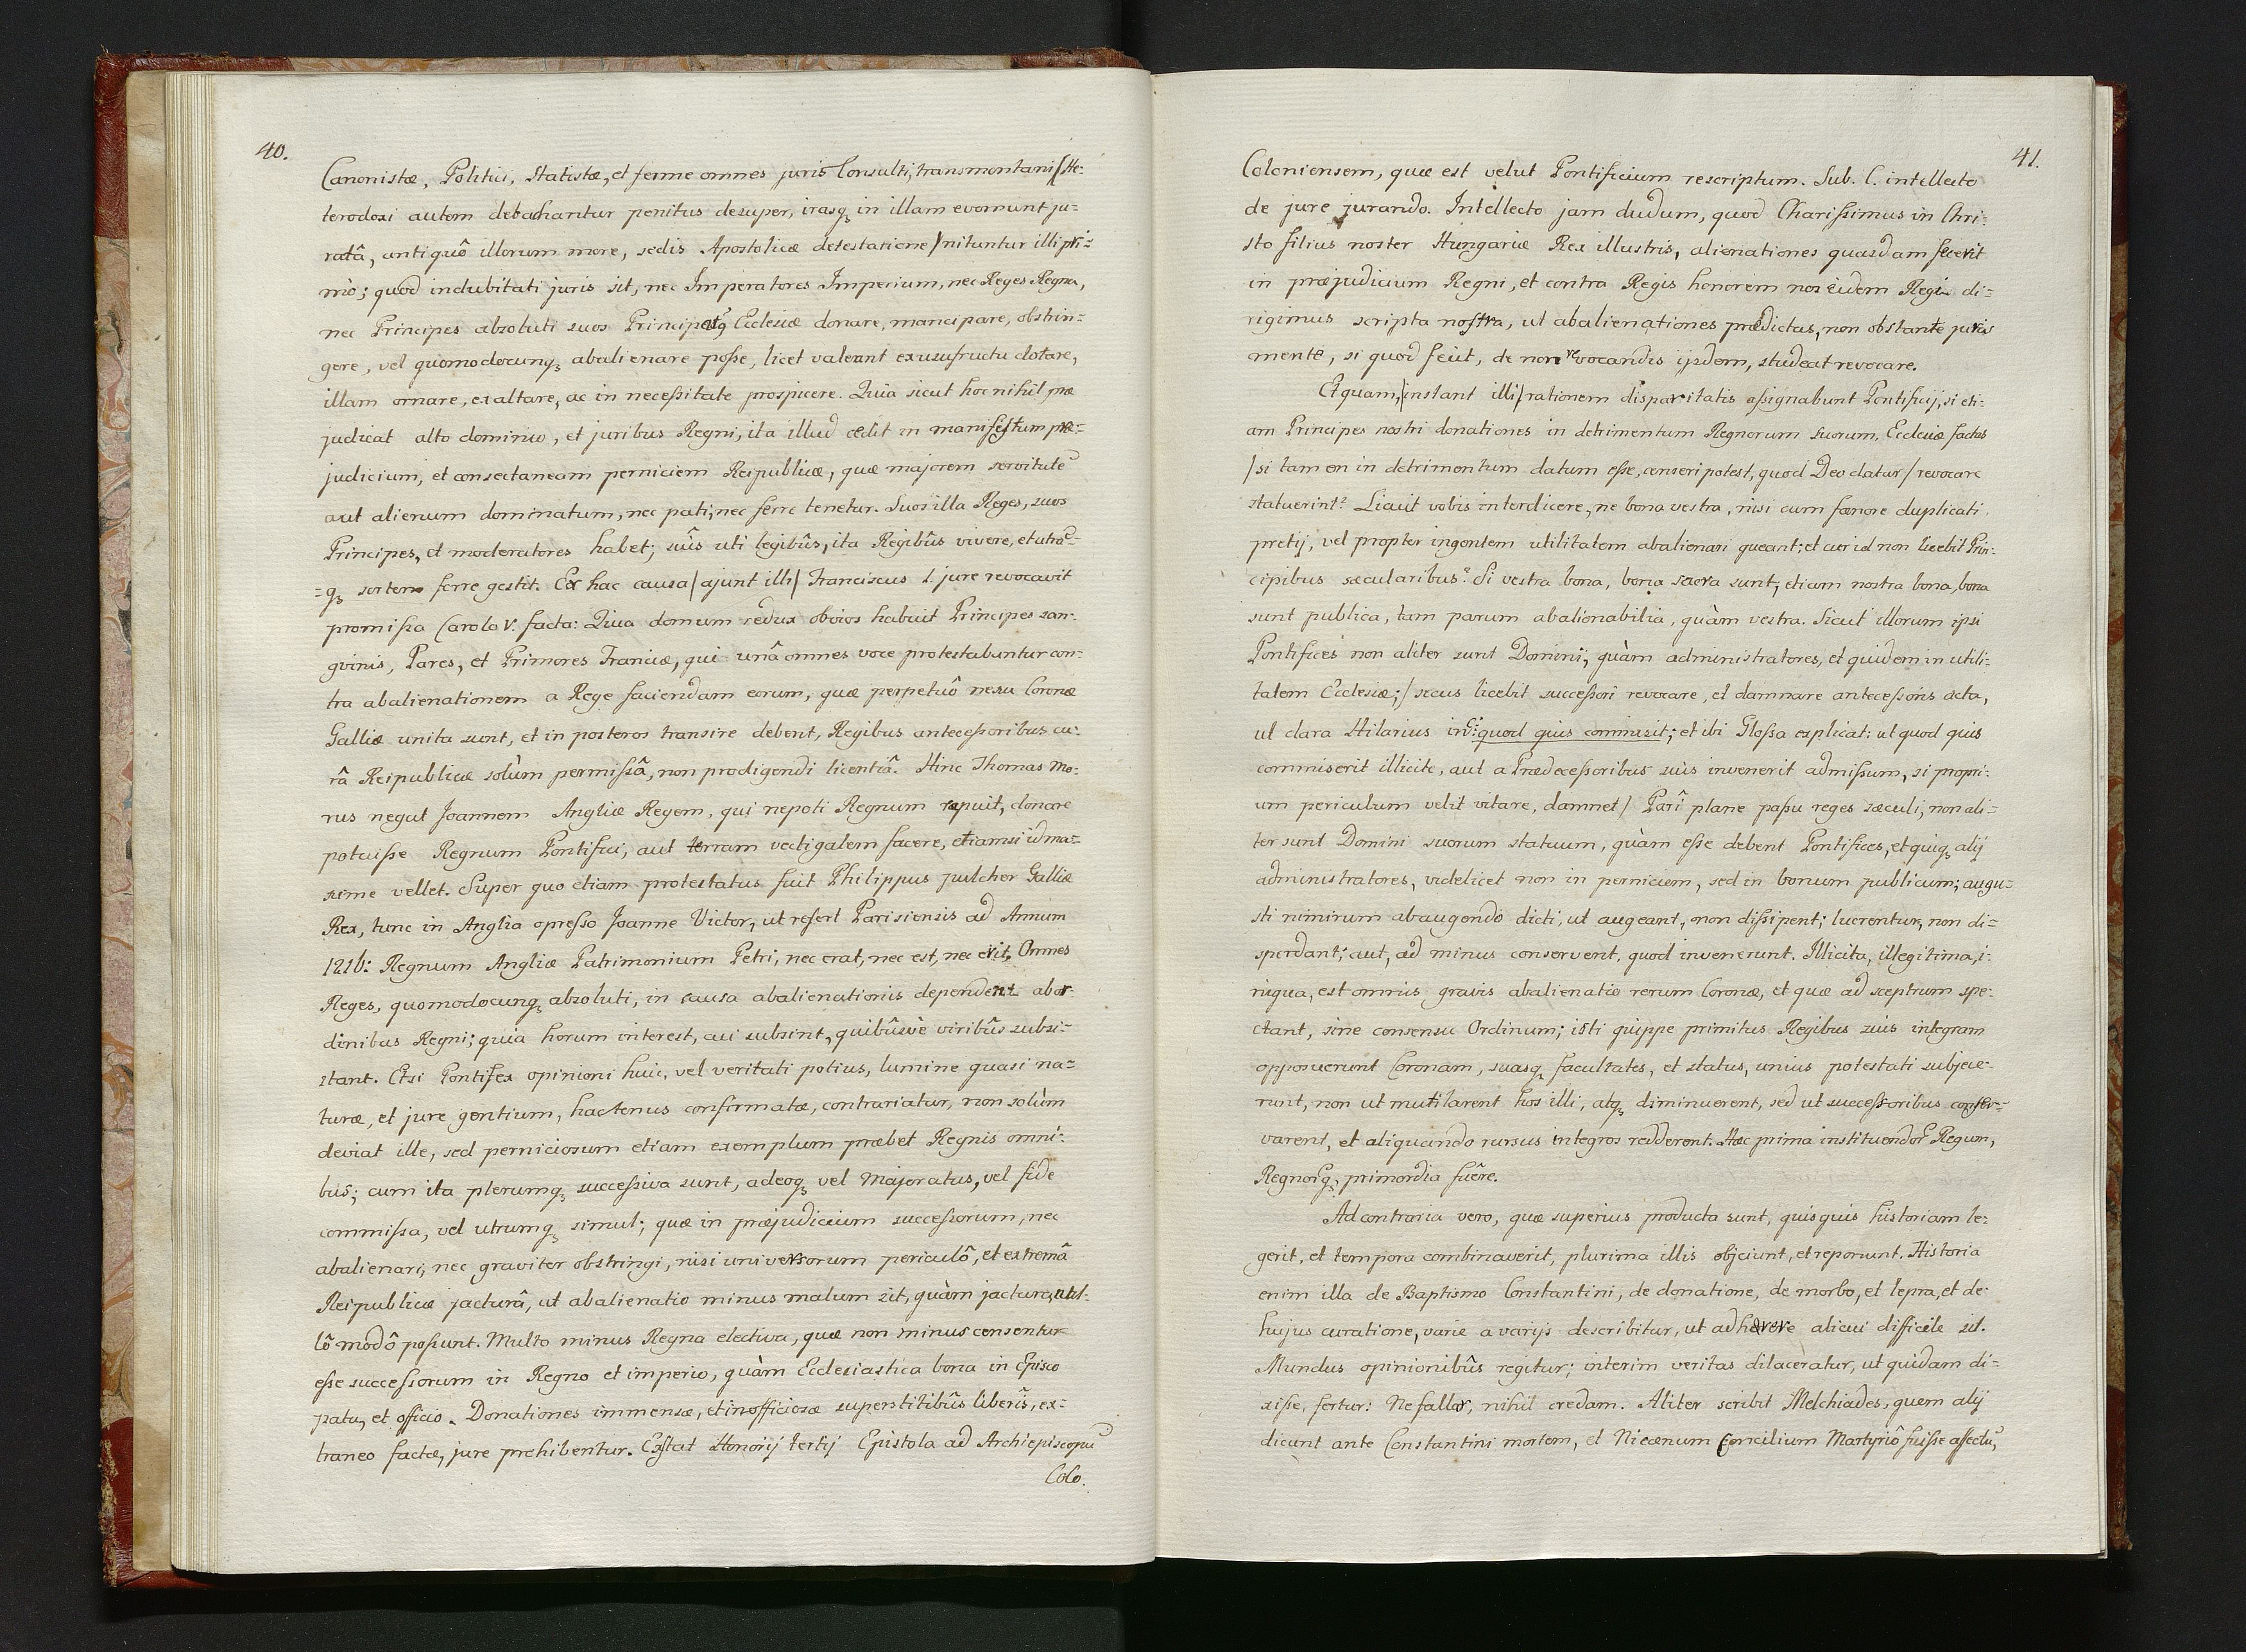 40.
Canonistæ, Politici, Statistæ, et ferme omnes juris Consulti, transmontani /He-
terodoxi autem debachantur penitus desuper, irasq in illam evomunt ju-
ratâ, antiquô illorum more, sedis Apostolicæ detestatione/ nituntur illi pri-
mò; quod indubitati juris sit, nec Imperatores Imperium, nec Reges Regna,
nec Principes absoluti suos Principatusq Ecclesiæ donare, mancipare, obstrin-
gere, vel quomodocunq abalienare posse, licet valeant ex usufructu dotare,
illam ornare, exaltare, ac in necessitate prospicere. Quia sicut hoc nihil præ
judicat alto dominio, et juribus Regni, ita illud cedit in manifestum præ-
judicium, et consectaneam perniciem Reipublicæ, quæ majorem servitutē
aut alienum dominatum, nec pati, nec ferre tenetur. Suos illa Reges, suos
Principes, et moderatores habet; suîs uti legibûs, ita Regibûs vivere, et utrā-
-q sortem ferre gestit. Ex hac causa /ajunt illi/ Franciscus 1. jure revocavit
promissa Carolo V. facta: Quia domum redux obvios habuit Principes san-
gvinis, Pares, et Primores Franciæ, qui unâ omnes voce protestabuntur con-
tra abalienationem a Rege faciendam eorum, quæ perpetuô nexu Coronæ
Galliæ unita sunt, et in posteros transire debent, Regibus antecessoribus cu-
râ Reipublicæ solùm permissâ, non prodigendi licentiâ. Hinc Thomas Mo-
rus negat Joannem Angliæ Regem, qui nepoti Regnum rapuit, donare
potuisse Regnum Pontifici, aut terram vectigalem facere, etiamsi id ma-
xime vellet. Super quo etiam protestatus fuit Philippus pulcher Galliæ
Rex, tunc in Anglia opresso Joanne Victor, ut refert Parisiensis ad Annum
1216: Regnum Angliæ Patrimonium Petri, nec erat, nec est, nec erit, Omnes
Reges, quomodocunq absoluti, in causa abalienationis dependent ab or-
dinibus Regni; quia horum interest, cui subsint, quibûsvè viribûs subsi-
stant. Etsi Pontifex opinioni huic, vel veritati potius, lumine quasi na-
turæ, et jure gentium, hactenus confirmatæ, contrariatur, non solùm
deviat ille, sed perniciosum etiam exemplum præbet Regnis omni-
bus; cum ita plerumq successiva sunt, adeoq vel Majoratus, vel fide
commissa, vel utrumq simul; quæ in præjudicium successorum, nec
abalienari, nec graviter obstringi, nisi universorum periculô, et extremâ
Reipublicæ jacturâ, ut abalienatio minus malum sit, quàm jactura, nul-
lô modô possunt. Multo minus Regna electiva, quæ non minus censentur
esse successorum in Regno et imperio, quàm Ecclesiastica bona in Episco
patu, et officio. Donationes immensæ, et inofficiosæ superstitibûs liberîs, ex-
traneo factæ, jure prohibentur. Exstat Honorij tertij Epistola ad Archiepiscopū
Colo.
41.
Coloniensem, quæ est velut Pontificium rescriptum. Sub. C. intellecto
de jure jurando. Intellecto jam dudum, quod Charissimus in Chri-
sto filius noster Hungariæ Rex illustris, alienationes quasdam fecerit
in præjudicium Regni, et contra Regis honorem nos eidem Regi di-
rigimus scripta nostra, ut abalienationes prædictas, non obstante jura
mente, si quod fêcit, de non revocandis ijsdem, studeat revocare.
Et quam, /instant illi/ rationem disparitatis assignabunt Pontificij, si eti-
am Principes nostri donationes in detrimentum Regnorum suorum, Ecclesiæ factas
/si tamen in detrimentum datum esse, censeri potest, quod Deo datur/ revocare
statuerint? Licuit vobis interdicere, ne bona vestra, nisi cum fœnore duplicati
pretij, vel propter ingentem utilitatem abalienari queant; et cur id non licebit Prin-
cipibus sæcularibus? Si vestra bona, bona sacra sunt, etiam nostra bona, bona
sunt publica, tam parum abalienabilia, quàm vestra. Sicut illorum ipsi
Pontifices non aliter sunt Domini, quàm administratores, et quidem in utili-
tatem Ecclesiæ; /secus licebit successori revocare, et damnare antecessoris acta,
ut clara Hilarius in C: quod quis commisit; et ibi Glossa explicat: ut quod quis
commiserit illicite, aut a Prædecessoribus suis invenerit admissum, si propri-
um periculum velit vitare, damnet/ Parî plane passu reges sæculi, non ali-
ter sunt Domini suorum statuum, quàm esse debent Pontifices, et quiq alij
administratores, videlicet non in perniciem, sed in bonum publicum; augu-
sti nimirum ab augendo dicti, ut augeant, non dissipent; lucrentur, non di-
sperdant; aut, ad minus conservent, quod invenerunt. Illicita, illegitima, i-
niqua, est omnis gravis abalienatio rerum Coronæ, et quæ ad sceptrum spe-
ctant, sine consensu Ordinum; isti quippe primitus Regibus suis integram
opposuerunt Coronam, suasq facultates, et status, unius potestati subjece-
runt, non ut mutilarent hos illi, atq diminuerent, sed ut successoribus conser-
varent, et aliquando rursus integros redderent. Hæc prima instituendor Regum,
Regnorq primordia fuêre.
Ad contraria vero, quæ superius producta sunt, quisquis historiam le-
gerit, et tempora combinaverit, plurima illis objciunt, et reponunt. Historia
enim illa de Baptismo Constantini, de donatione, de morbo, et lepra, et de
hujus curatione, varie a varijs describitur, ut adhærere alicui difficile sit.
Mundus opinionibûs regitur; interim veritas dilaceratur, ut quidam di-
xisse, fertur: Ne fallar, nihil credam. Aliter scribit Melchiades, quem alij
dicunt ante Constantini mortem, et Nicænum Concilium Martyriô fuisse affectū,